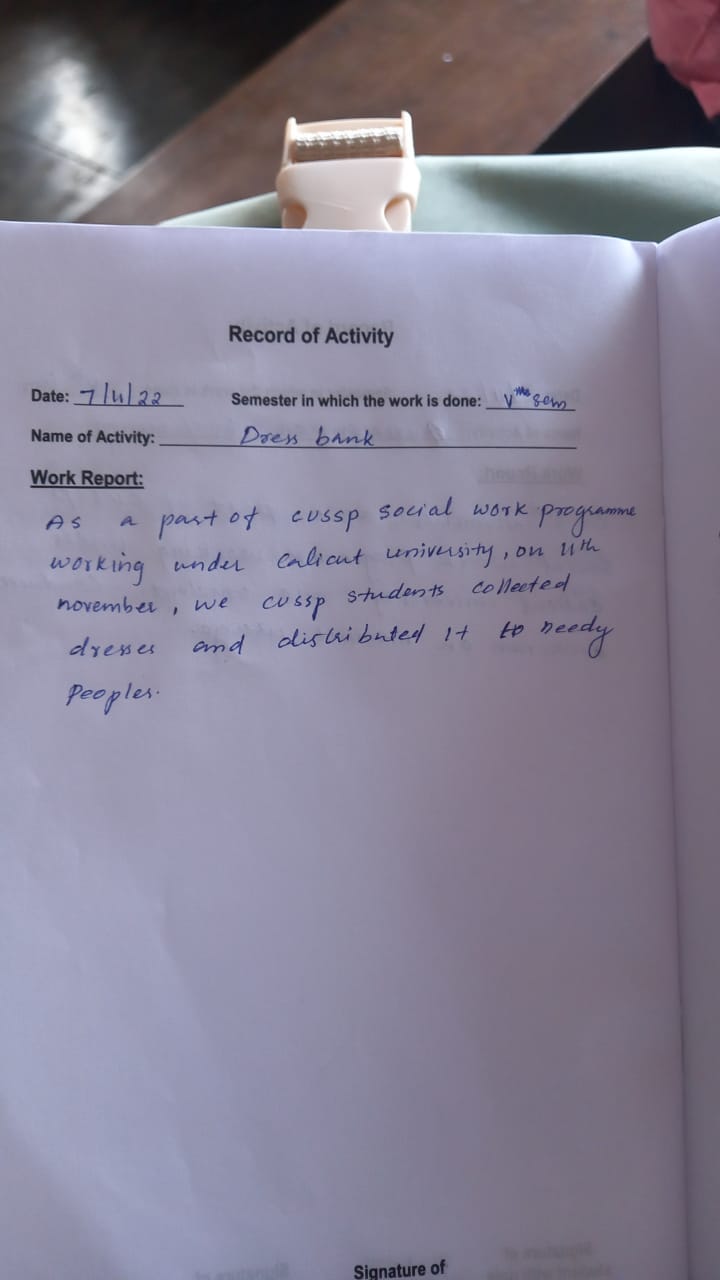 Record of Activity
Date: 7/11/22 Semester in which the work is done: Vth sem
Name of Activity: Dress bank
Work Report:
As a part of CUSSP social work programme
working under Calicut university, on 11th
november, we CUSSP students collected
dresses and distributed it to needy
Peoples.
Signature of